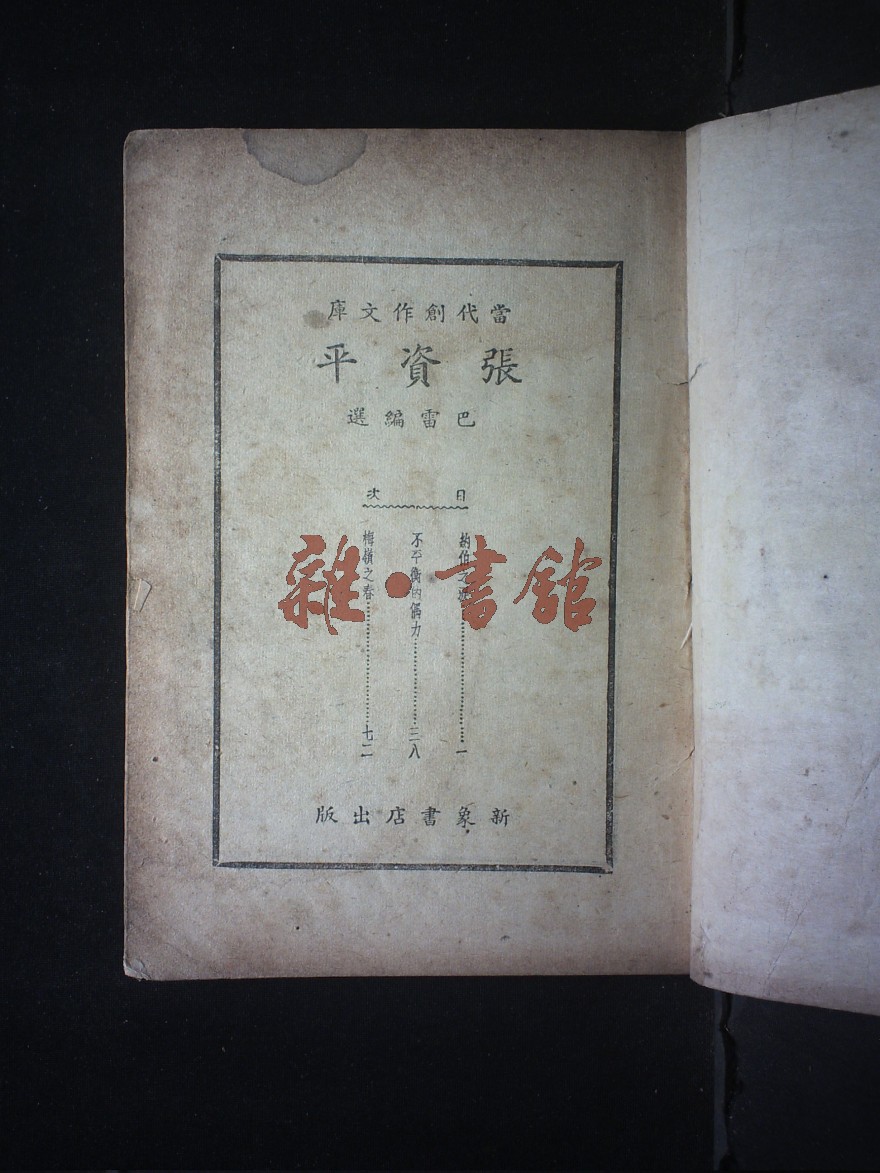 當代創作文庫
張資平
巴雷編選
目次
約伯之淚……一
不平衡的偶力……三八
梅嶺之春……七二
新象書店出版
雜·書館